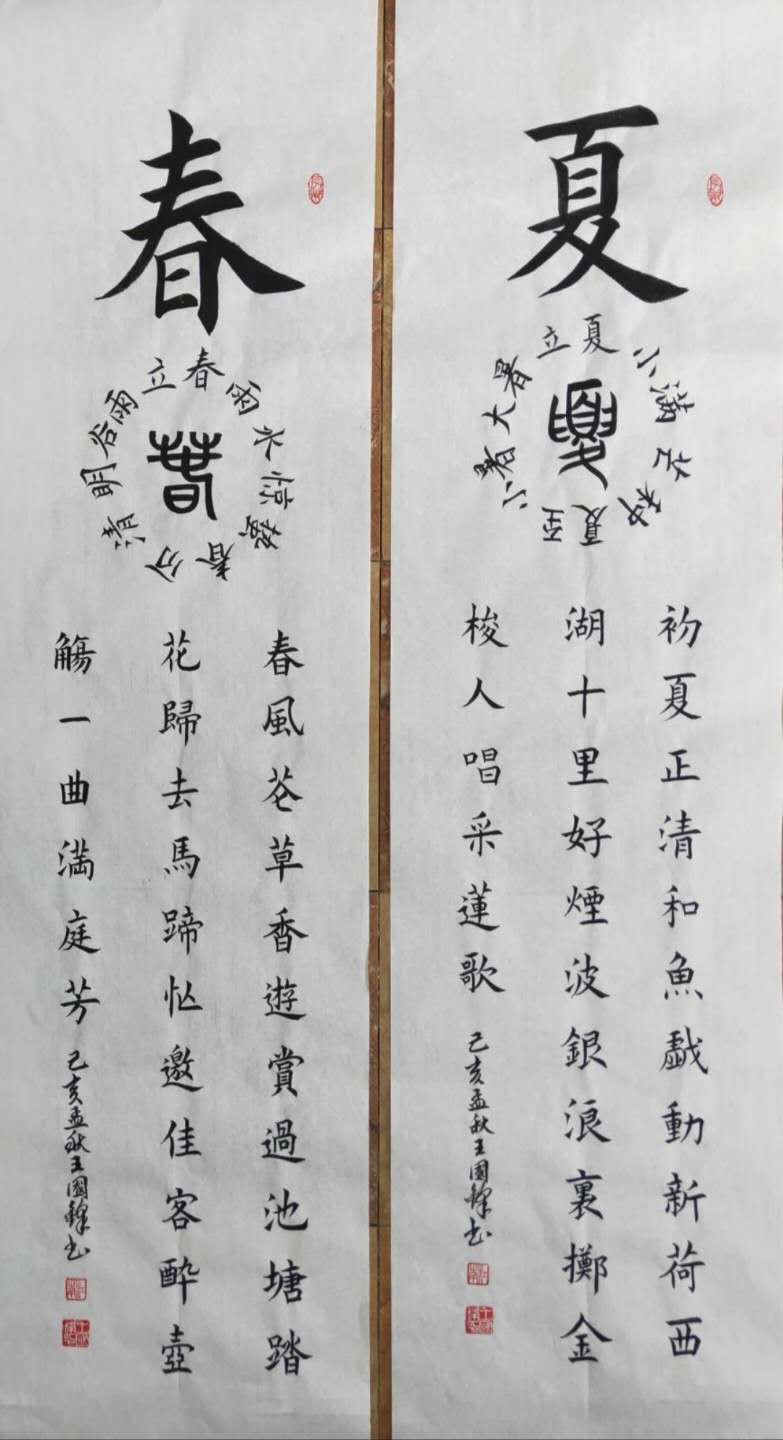 春
立春雨水惊蟄春分清明谷雨
春
春風芲草香遊賞過池塘踏
花歸去馬蹄忙邀佳客醉壺
觴一曲满庭芳
己亥孟秋王國鋒书
夏
立夏小满芒种夏至小暑大暑
夏
初夏正清和魚戲動新荷西
湖十里好煙波銀浪裏擲金
梭人唱采蓮歌
己亥孟秋王國鋒书